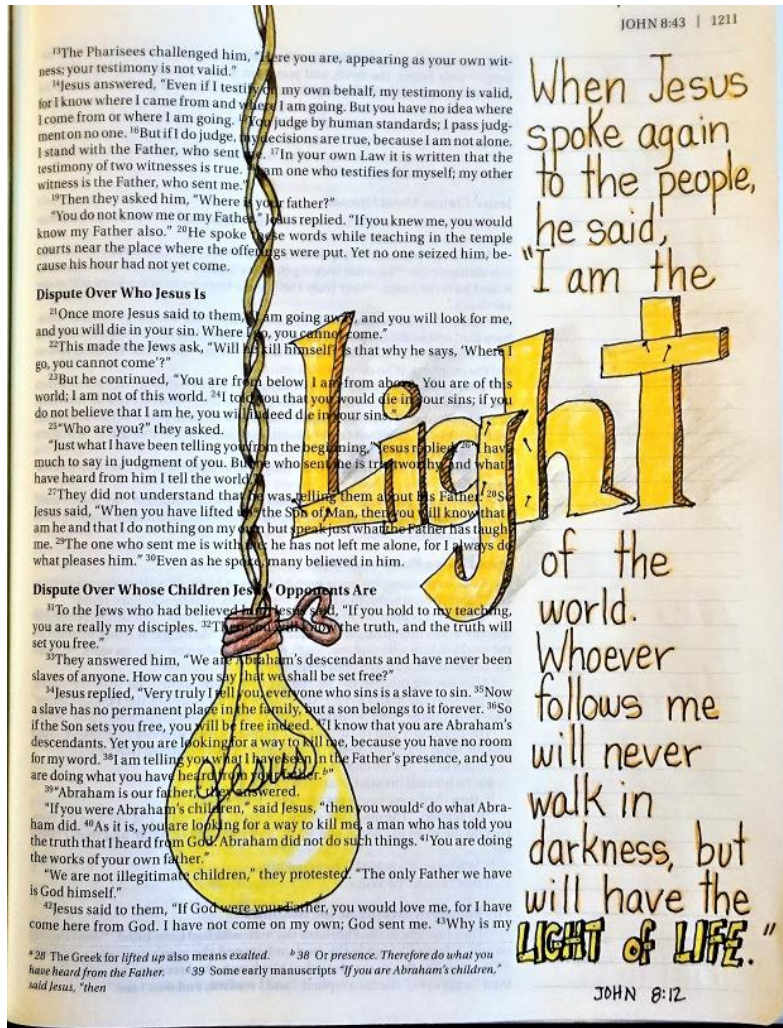 JOHN 8:43 | 1211
¹³The Pharisees challenged him, “Here you are, appearing as your own wit-
ness; your testimony is not valid.”
¹⁴Jesus answered, “Even if I testify on my own behalf, my testimony is valid,
for I know where I came from and where I am going. But you have no idea where
I come from or where I am going. ¹⁵You judge by human standards; I pass judg-
ment on no one. ¹⁶But if I do judge, my decisions are true, because I am not alone.
I stand with the Father, who sent me. ¹⁷In your own Law it is written that the
testimony of two witnesses is true. ¹⁸I am one who testifies for myself; my other
witness is the Father, who sent me.”
¹⁹Then they asked him, “Where is your father?”
“You do not know me or my Father,” Jesus replied. “If you knew me, you would
know my Father also.” ²⁰He spoke these words while teaching in the temple
courts near the place where the offerings were put. Yet no one seized him, be-
cause his hour had not yet come.
Dispute Over Who Jesus Is
²¹Once more Jesus said to them, “I am going away, and you will look for me,
and you will die in your sin. Where I go, you cannot come.”
²²This made the Jews ask, “Will he kill himself? Is that why he says, ‘Where I
go, you cannot come’?”
²³But he continued, “You are from below; I am from above. You are of this
world; I am not of this world. ²⁴I told you that you would die in your sins; if you
do not believe that I am he, you will indeed die in your sins.”
²⁵“Who are you?” they asked.
“Just what I have been telling you from the beginning,” Jesus replied. ²⁶“I have
much to say in judgment of you. But he who sent me is trustworthy, and what I
have heard from him I tell the world.”
²⁷They did not understand that he was telling them about his Father. ²⁸So
Jesus said, “When you have lifted up the Son of Man, then you will know that I
am he and that I do nothing on my own but speak just what the Father has taught
me. ²⁹The one who sent me is with me; he has not left me alone, for I always do
what pleases him.” ³⁰Even as he spoke, many believed in him.
Dispute Over Whose Children Jesus’ Opponents Are
³¹To the Jews who had believed him, Jesus said, “If you hold to my teaching,
you are really my disciples. ³²Then you will know the truth, and the truth will
set you free.”
³³They answered him, “We are Abraham’s descendants and have never been
slaves of anyone. How can you say that we shall be set free?”
³⁴Jesus replied, “Very truly I tell you, everyone who sins is a slave to sin. ³⁵Now
a slave has no permanent place in the family, but a son belongs to it forever. ³⁶So
if the Son sets you free, you will be free indeed. ³⁷I know that you are Abraham’s
descendants. Yet you are looking for a way to kill me, because you have no room
for my word. ³⁸I am telling you what I have seen in the Father’s presence, and you
are doing what you have heard from your father.ᵇ”
³⁹“Abraham is our father,” they answered.
“If you were Abraham’s children,” said Jesus, “then you wouldᶜ do what Abra-
ham did. ⁴⁰As it is, you are looking for a way to kill me, a man who has told you
the truth that I heard from God. Abraham did not do such things. ⁴¹You are doing
the works of your own father.”
“We are not illegitimate children,” they protested. “The only Father we have
is God himself.”
⁴²Jesus said to them, “If God were your Father, you would love me, for I have
come here from God. I have not come on my own; God sent me. ⁴³Why is my
ᵃ28 The Greek for lifted up also means exalted. ᵇ38 Or presence. Therefore do what you
have heard from the Father. ᶜ39 Some early manuscripts “If you are Abraham’s children,”
said Jesus, “then
Jesus
When Jesus
spoke again
to the people,
he said,
“I am the
Light
of the
world.
Whoever
follows me
will never
walk in
darkness, but
will have the
LIGHT of LIFE.”
JOHN 8:12